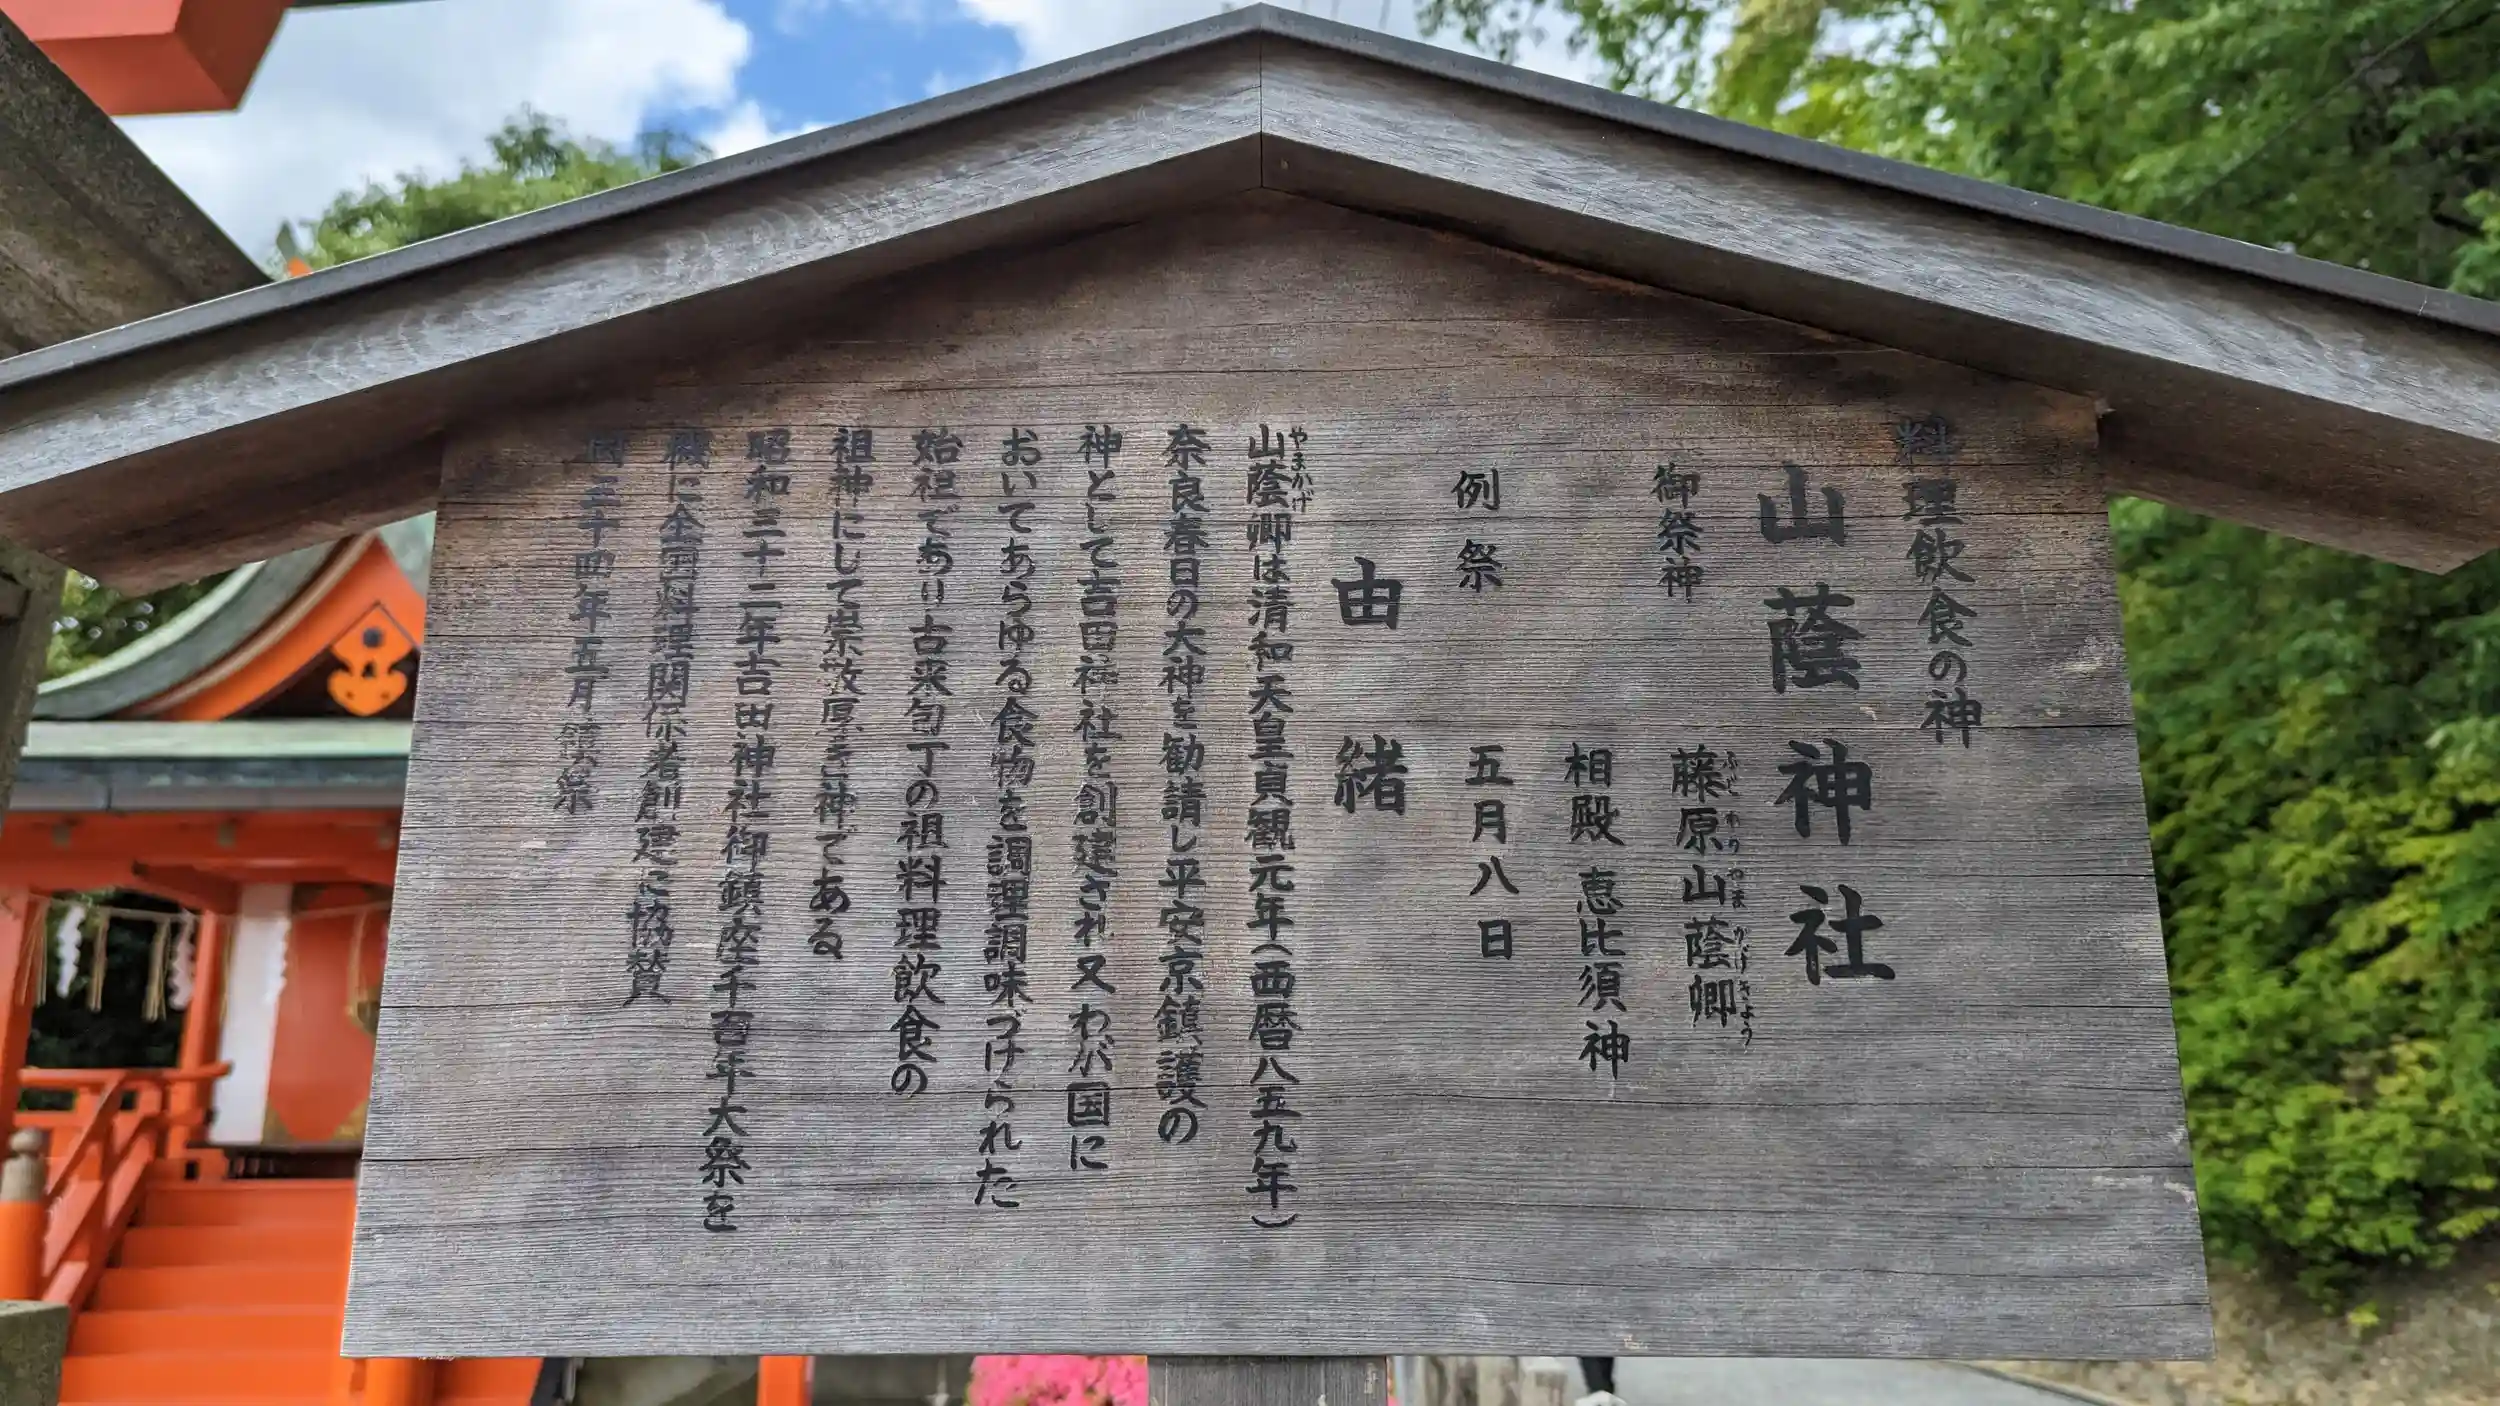 料理飲食の神
山蔭神社
御祭神 藤原山蔭卿
ふじわらやまかげきょう
相殿 恵比須神
例祭 五月八日
由緒
山蔭卿は清和天皇貞観元年(西暦八五九年)
やまかげ
奈良春日の大神を勧請し平安京鎮護の
神として吉田神社を創建され又わが国に
おいてあらゆる食物を調理調味づけられた
始祖であり古来包丁の祖料理飲食の
祖神にして崇敬厚き神である
昭和三十二年吉田神社御鎮座千百年大祭を
機に全国料理関係者創建に協賛
同三十四年五月鎮祭